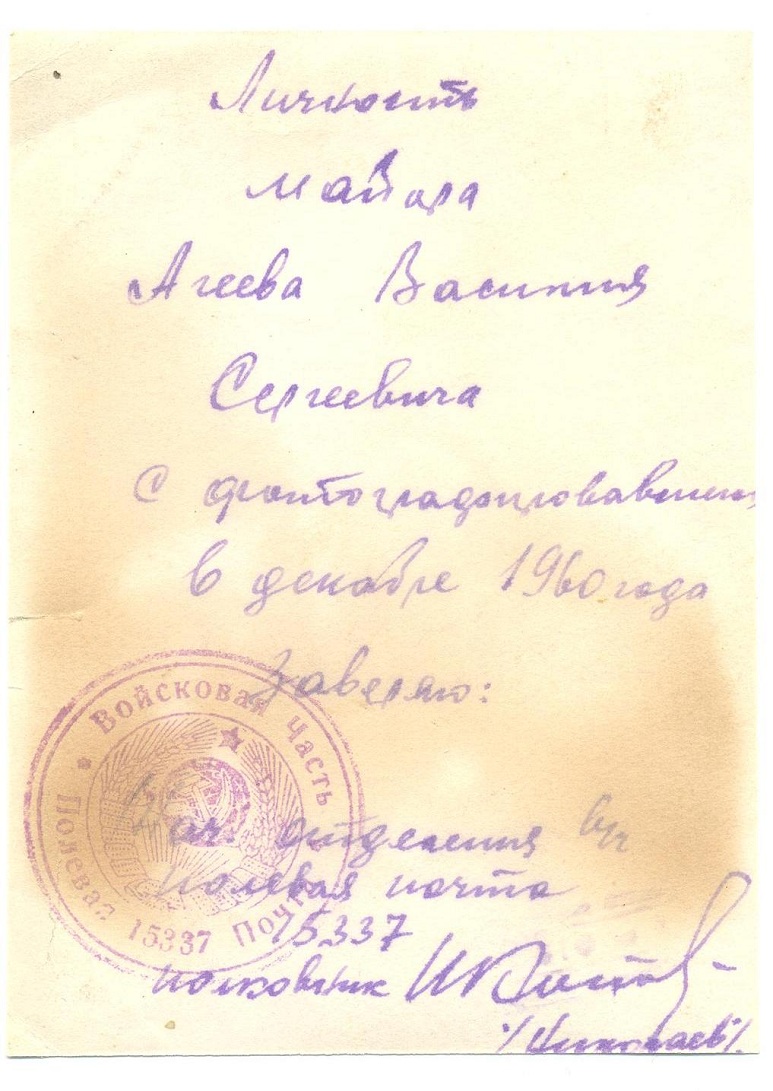 Личность
майора
Агеева Василия
Сергеевича
с фотографировавшегося
в декабре 1960 года
Заверяю:
Войсковая Часть
Полевая Почта 15337
Нач. отделения в/ч
полевая почта
15337
полковник
/Николаев/.